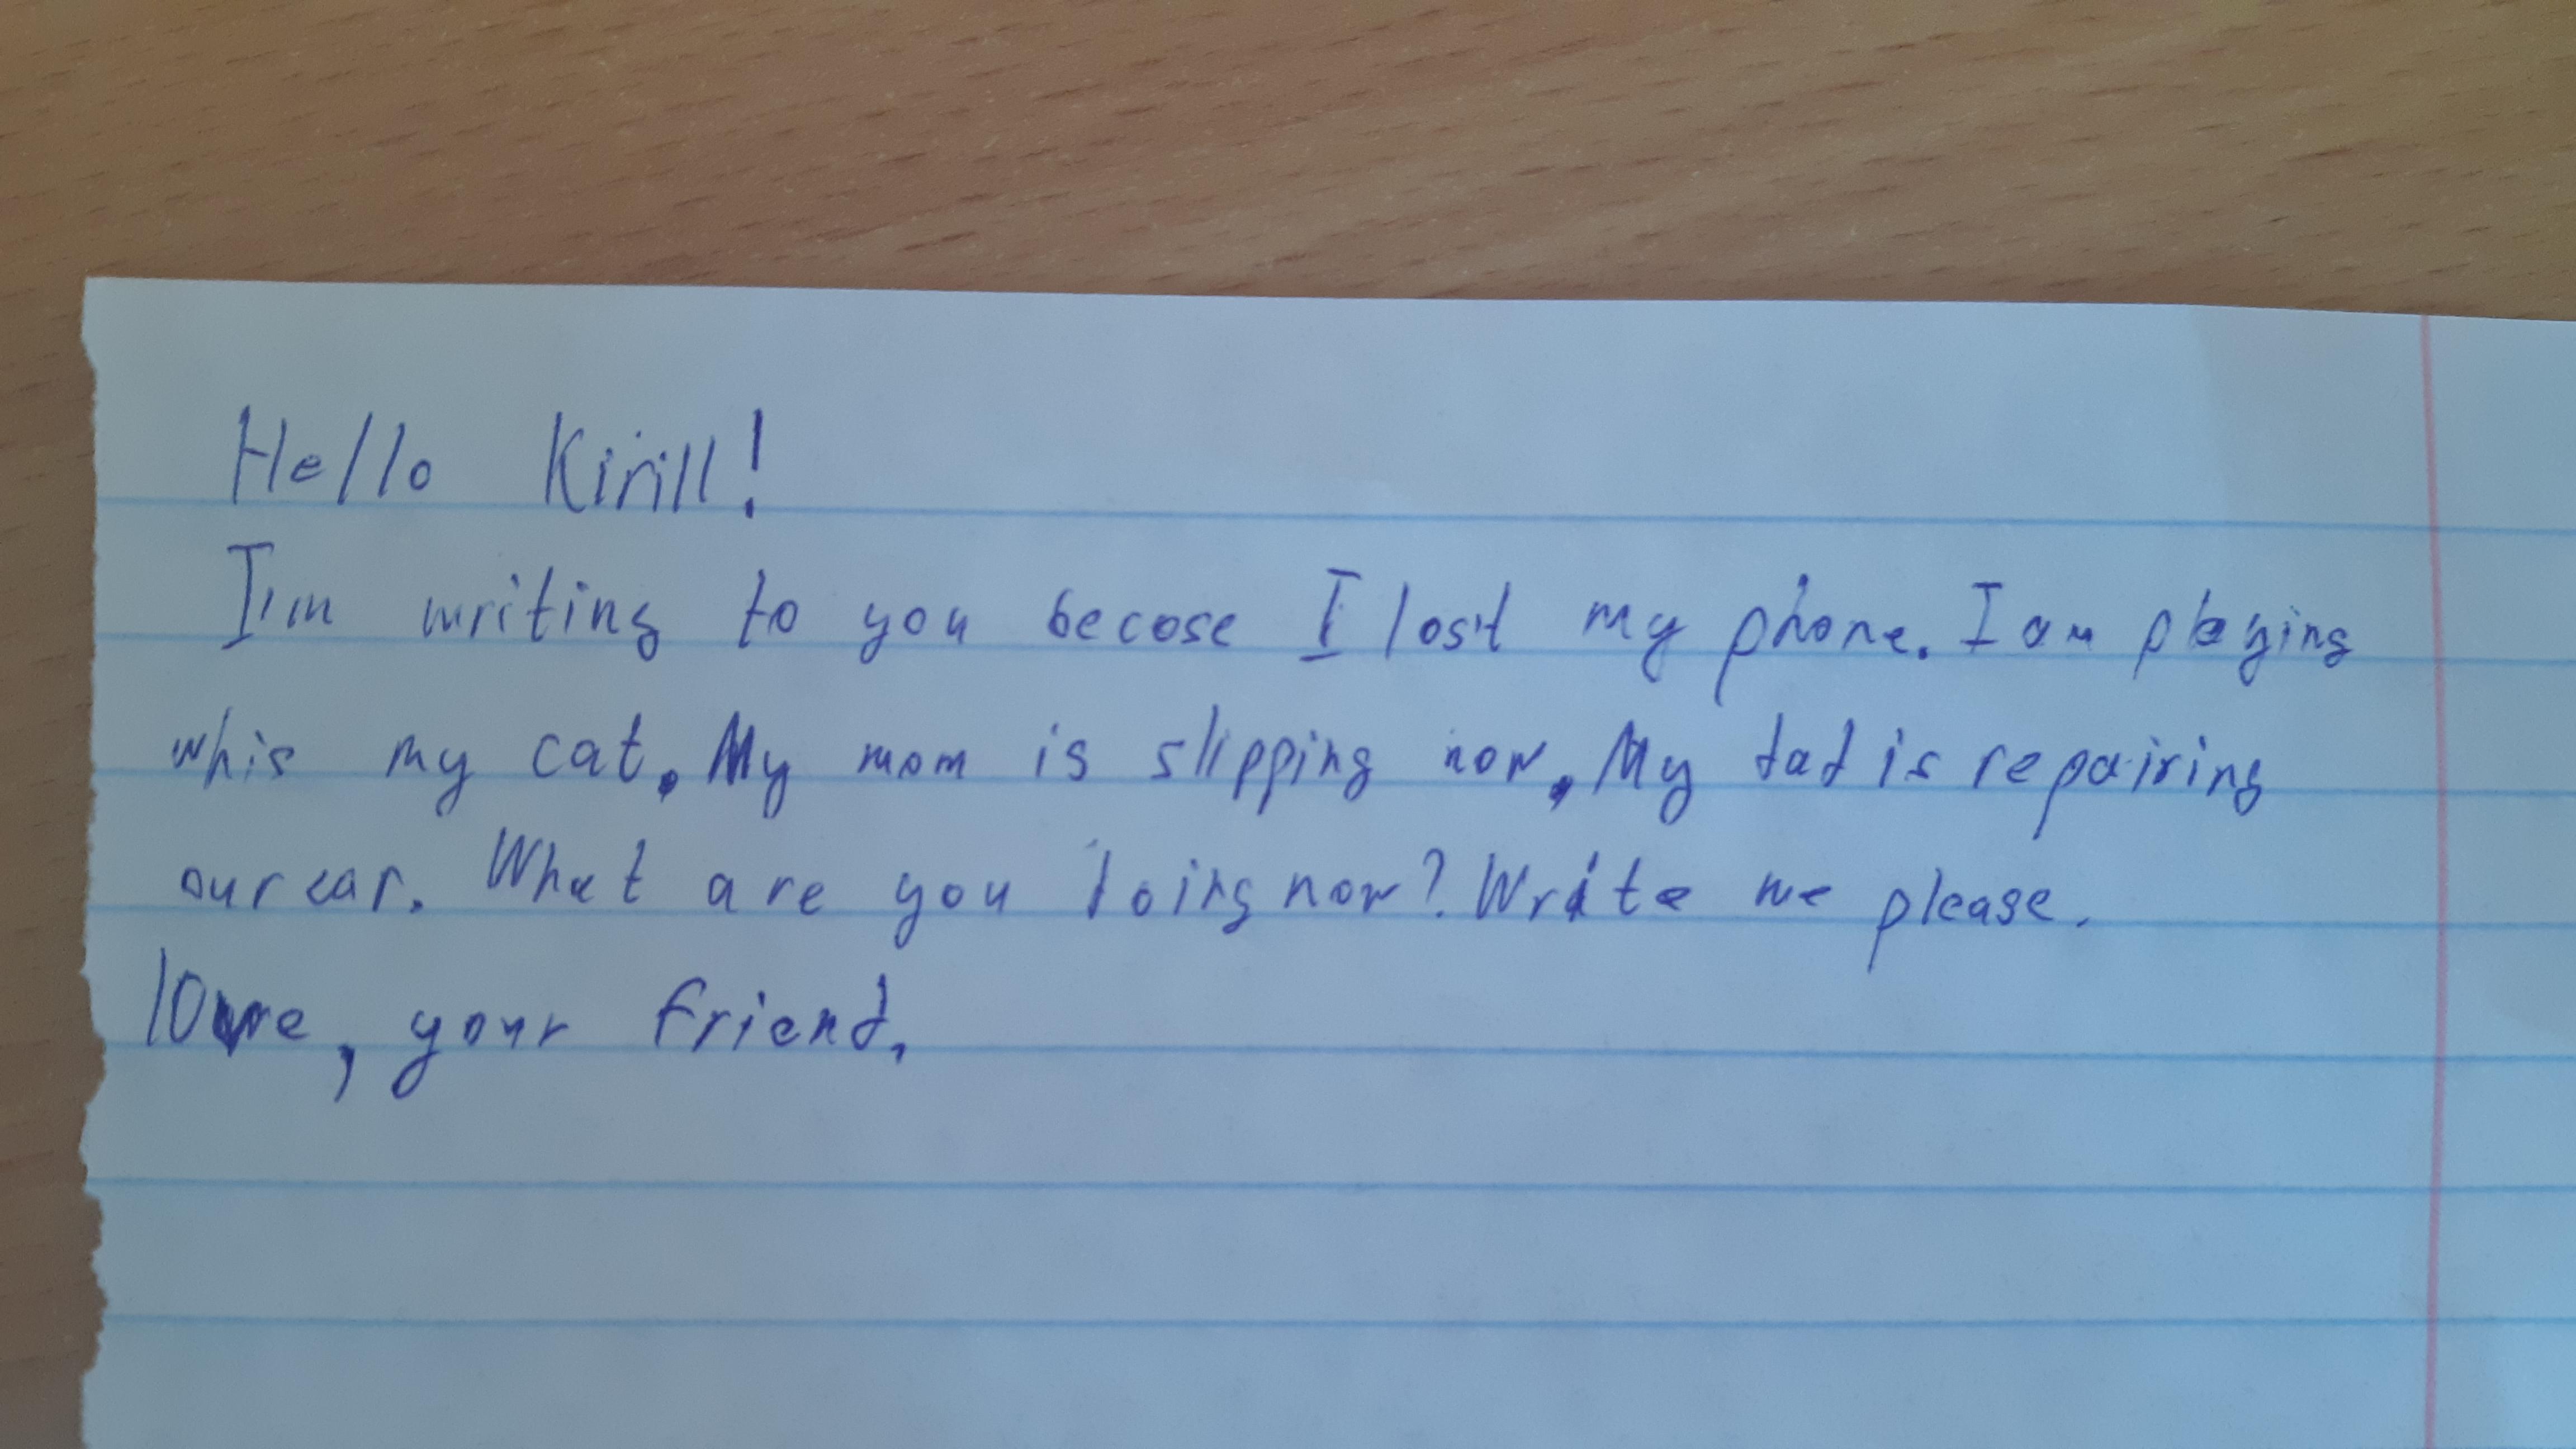 Hello Kirill!
I'm writing to you becose I lost my phone. I am playing
whis my cat. My mom is slipping now. My dad is repairing
our car. What are you doing now? Write me please.
love, your friend.